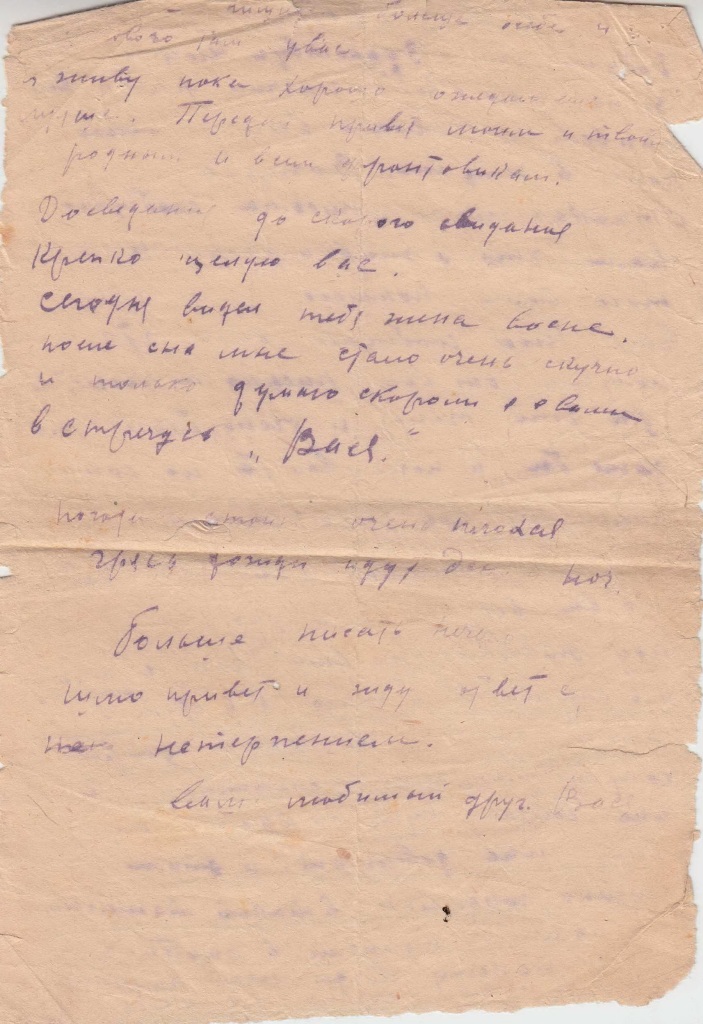 живу пока хорошо
Передай привет моим и твоим
родным и всем фронтовикам.
Досведания до скорого свидания
Крепко целую вас.
сегодня видел тебя жена восне.
после сна мне стало очень скучно
и только думаю скороли с вами
встречусь „Вася."
погода стоит очень плохая
грязь дожди идут ноч.
Больше писать нечего
шлю привет и жду ответ с
нетерпением.
ваш любимый друг. Вася